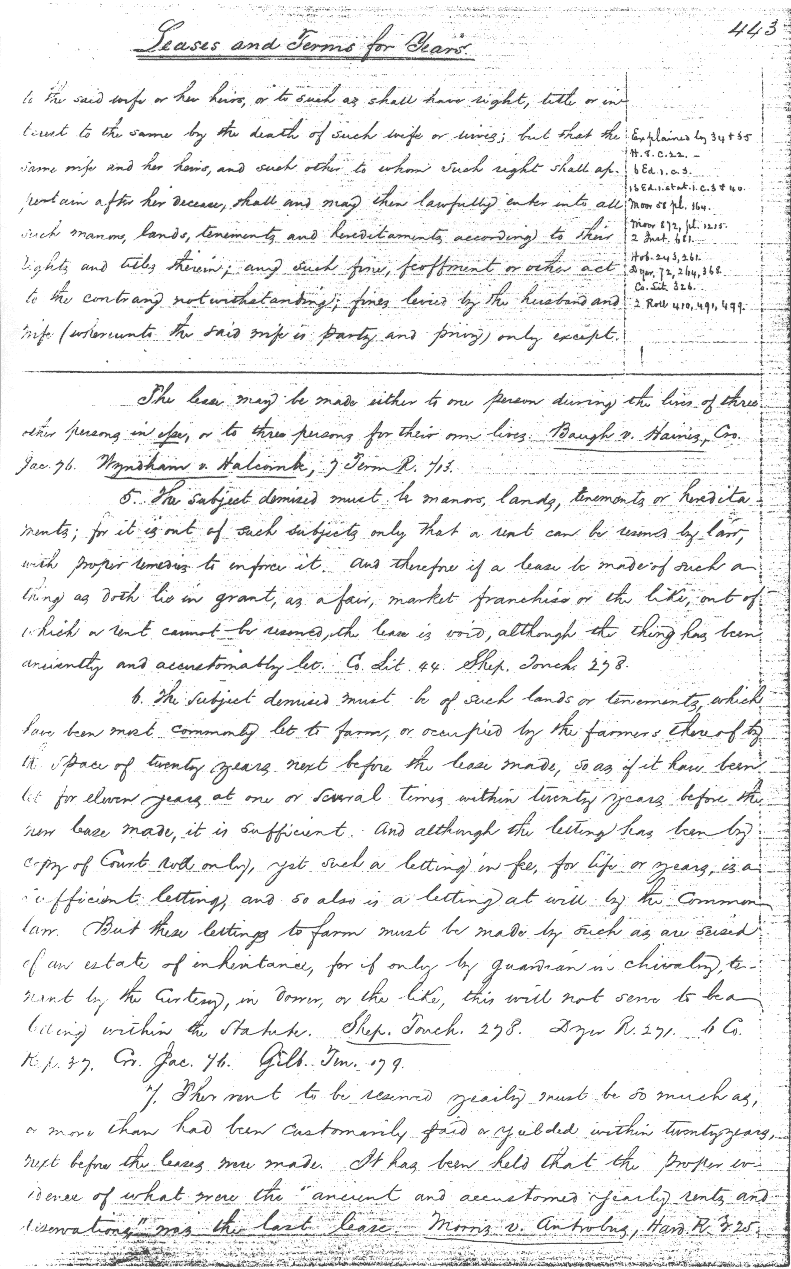 443
Leases and Terms for Years.
to the said wife or her heirs, or to such as shall have right, title or in
terest to the same by the death of such wife or wives; but that the
same wife and her heirs, and such other to whom such right shall ap-
pertain after her decease, shall and may then lawfully enter into all
such manors, lands, tenements and hereditaments according to their
rights and titles therein; any such fine, feoffment or other act
to the contrary notwithstanding; fines levied by the husband and
wife (whereunto the said wife is party and privy) only except.
Explained by 34 & 35
H. 8. c. 22. –
6 Ed. 1. c. 3.
Moor 58 pl. 164.
Moor 872, pl. 1215.
2 Inst. 681.
Hob. 243, 261.
Dyer, 72, 264, 368.
Co. Lit. 326.
2 Roll 410, 491, 499.
The lease may be made either to one person during the lives of three
other persons in esse, or to three persons for their own lives. Baugh v. Haines, Cro.
Jac. 76. Wyndham v. Halcomb, 7 Term R. 713.
5. The subject demised must be manors, lands, tenements or heredita-
ments; for it is out of such subjects only that a rent can be reserved by law,
with proper remedies to enforce it. And therefore if a lease be made of such a
thing as doth lie in grant, as a fair, market franchise or the like, out of
which a rent cannot be reserved, the lease is void, although the thing has been
anciently and accustomably let. Co. Lit. 44. Shep. Touch. 278.
6. The subject demised must be of such lands or tenements, which
have been most commonly let to farm, or occupied by the farmers thereof by
the space of twenty years next before the lease made, so as if it have been
let for eleven years at one or several times within twenty years before the
new lease made, it is sufficient. And although the letting has been by
copy of Court roll only, yet such a letting in fee, for life or years, is a
sufficient letting, and so also is a letting at will by the Common
law. But these lettings to farm must be made by such as are seised
of an estate of inheritance, for if only by guardian in chivalry, te-
nant by the Curtesy, in dower, or the like, this will not serve to be a
letting within the Statute. Shep. Touch. 278. Dyer R. 271. 6 Co.
R. p. 37. Cro. Jac. 76. Gilb. Ten. 179.
7. Ther rent to be reserved yearly must be so much as,
or more than had been customarily paid or yielded within twenty years,
next before the leases were made. It has been held that the proper ev-
idence of what were the "ancient and accustomed yearly rents and
reservations" was the last lease. Morris v. Antrobus, Hard. R. 325,